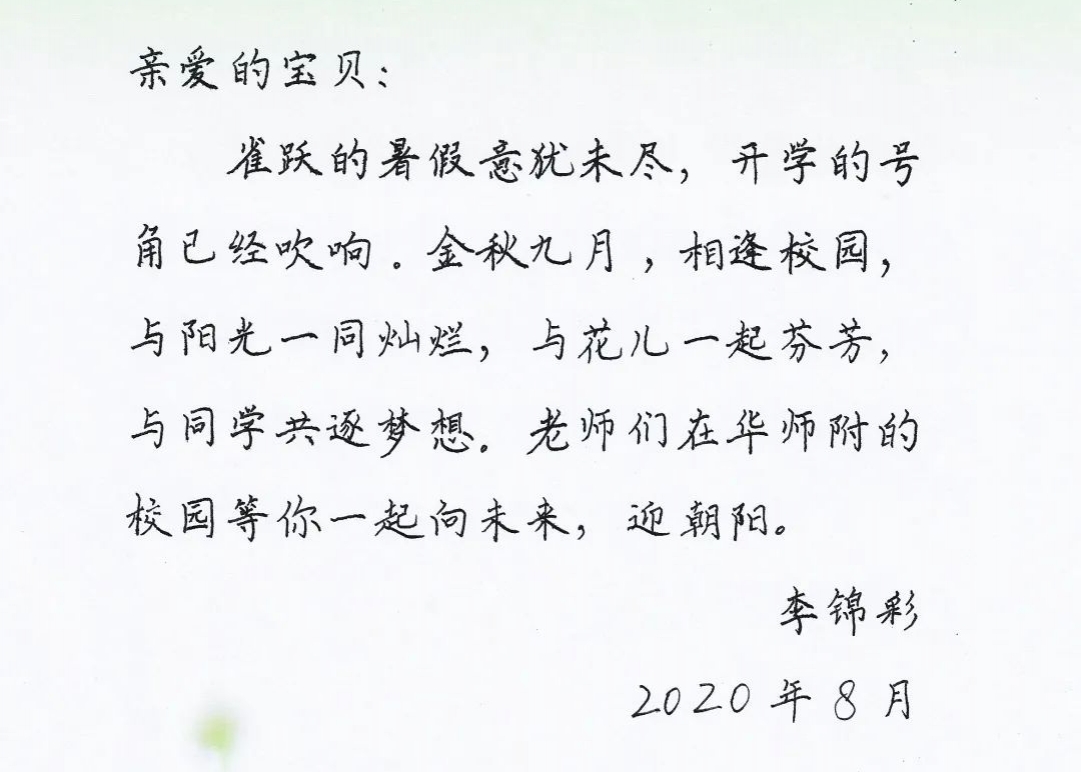 亲爱的宝贝：
雀跃的暑假意犹未尽，开学的号
角已经吹响。金秋九月，相逢校园，
与阳光一同灿烂，与花儿一起芬芳，
与同学共逐梦想。老师们在华师附的
校园等你一起向未来，迎朝阳。
李锦彩
2020年8月